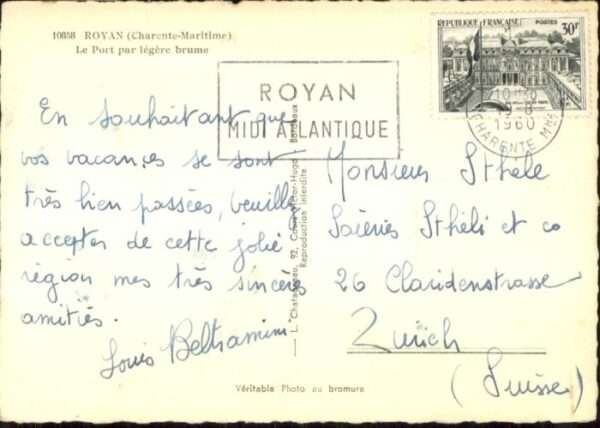 10858 ROYAN (Charente-Maritime)
Le Port par légère brume
REPUBLIQUE FRANÇAISE POSTES
30F
ROYAN
MIDI ATLANTIQUE
1960
CHARENTE Mme
En souhaitant que
vos vacances se sont
très bien passées, veuillez
accepter de cette jolie
région mes très sincères
amitiés.
Louis Beltramini
L. Chatagneau, 92, Cours Victor-Hugo, Bordeaux
Reproduction interdite
Monsieur Sthele
Soieries Sthéli et co
26 Claridenstrasse
Zurich
(Suisse)
Véritable Photo au bromure